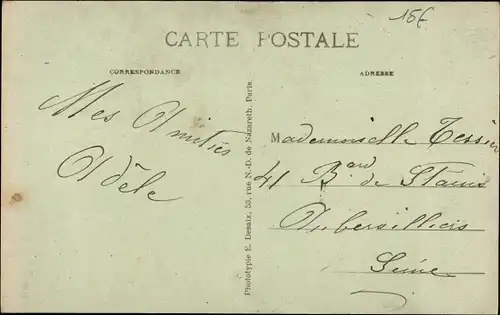 15€
CARTE POSTALE
CORRESPONDANCE
ADRESSE
Mes Amitiés
Adèle
Phototypie E. Desaix, 53, rue N.-D. de Nazareth. Paris.
Mademoiselle Tessier
41 Bard de Stains
Aubervilliers
Seine